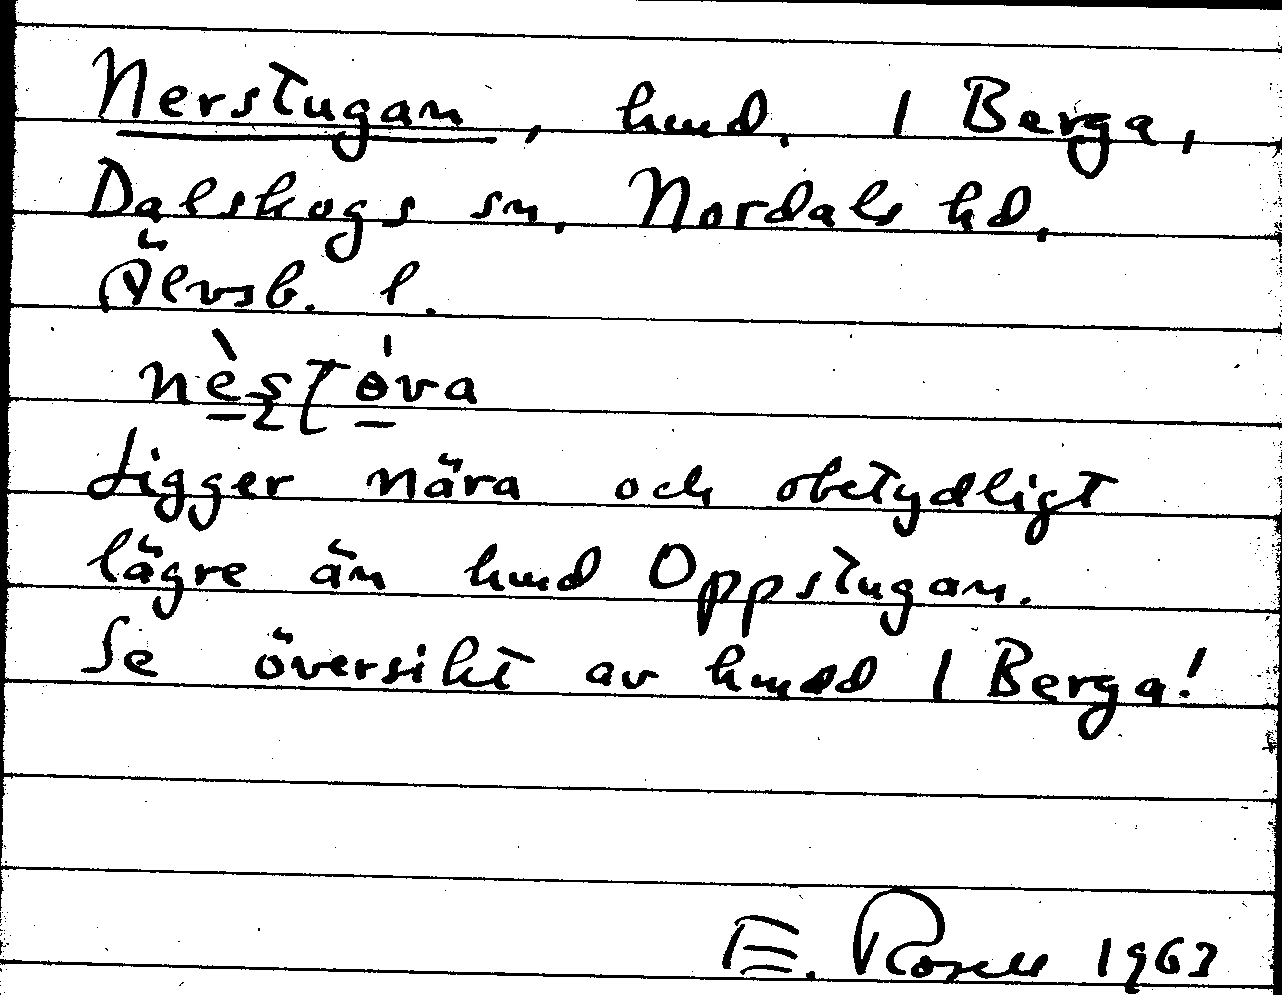 Nerstugan, hmd. 1 Berga,
Dalskogs sn. Nordals hd.
Älvsb. l.
Ligger nära och obetydligt
lägre än hmd Oppstugan.
Se översikt av hmdd 1 Berga!
E. Rosell 1963